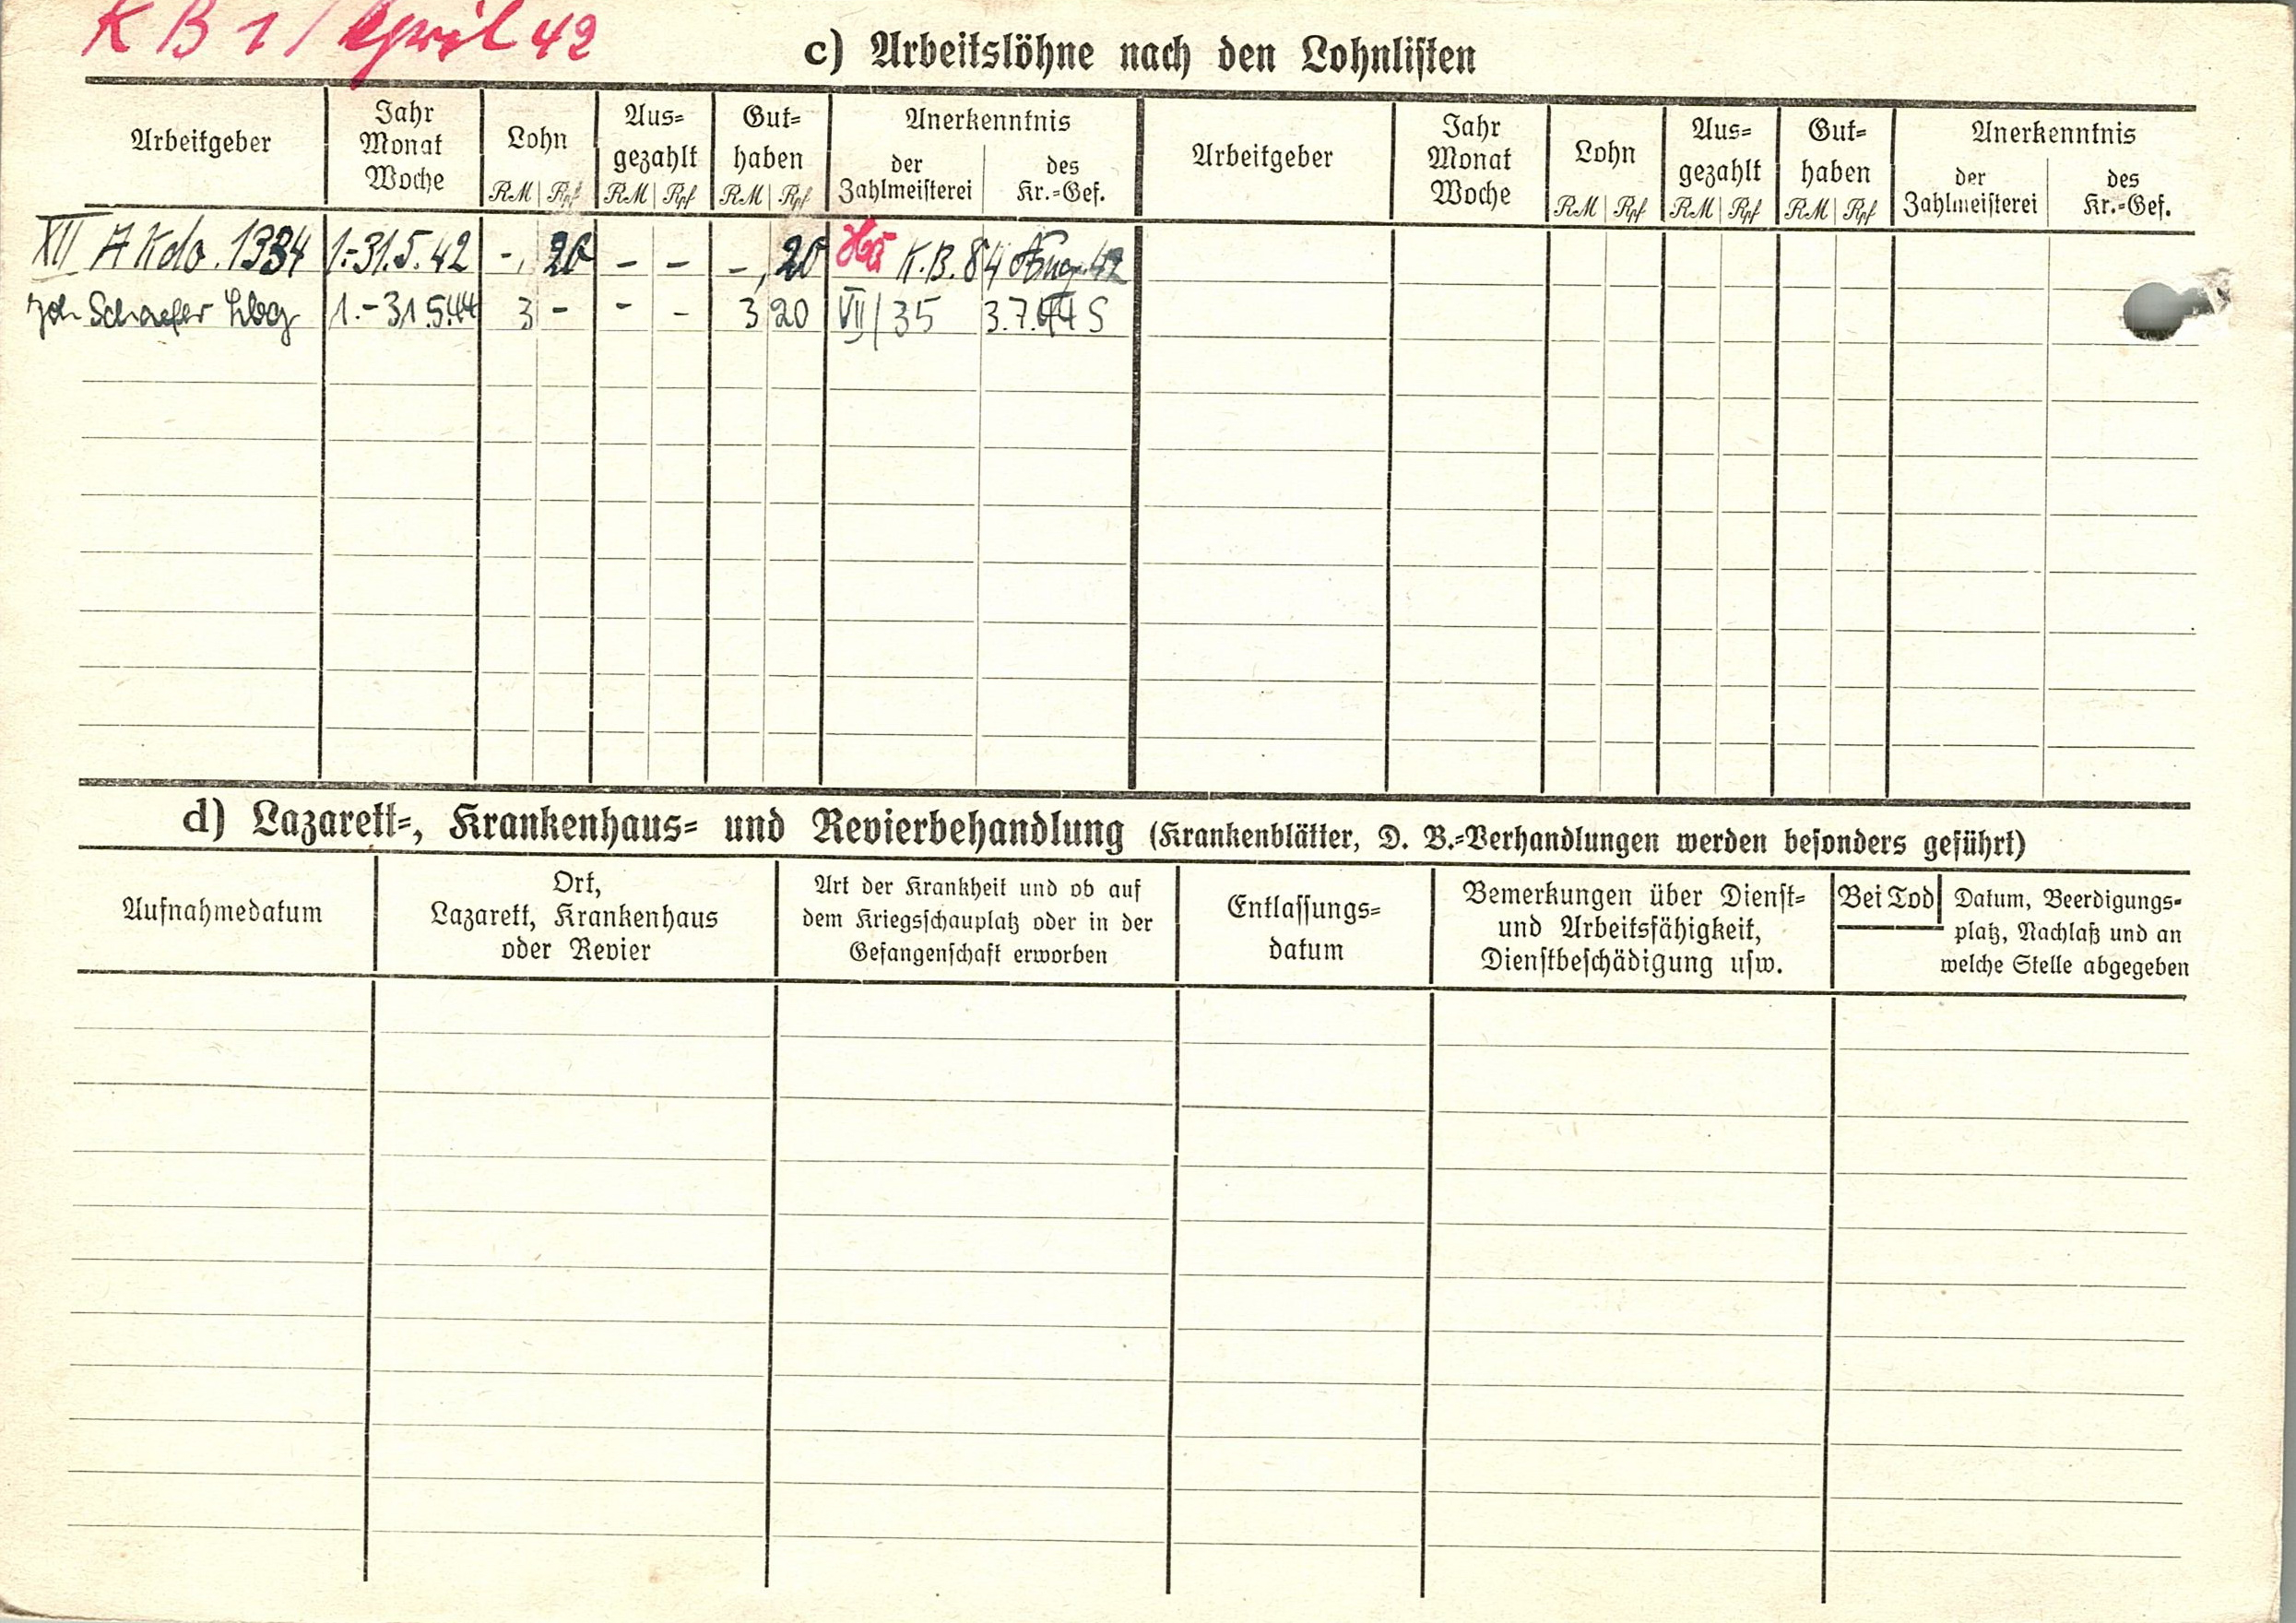 K B 1 / April 42
c) Arbeitslöhne nach den Lohnlisten
Arbeitgeber
Jahr
Monat
Woche
Lohn
RM | Rpf
Aus-
gezahlt
RM | Rpf
Gut-
haben
RM | Rpf
Anerkenntnis
der
Zahlmeisterei
des
Kr.-Gef.
Arbeitgeber
Jahr
Monat
Woche
Lohn
RM | Rpf
Aus-
gezahlt
RM | Rpf
Gut-
haben
RM | Rpf
Anerkenntnis
der
Zahlmeisterei
des
Kr.-Gef.
XII A Kdo. 1334 1.-31.5.42 -, 20 - - -, 20 K.B. 84 Aug. 42
Joh Schaefer Lbg 1.-31.5.44 3 - - - 3 20 VII/35 3.7.44 S
d) Lazarett-, Krankenhaus- und Revierbehandlung (Krankenblätter, D. B.-Verhandlungen werden besonders geführt)
Aufnahmedatum
Ort,
Lazarett, Krankenhaus
oder Revier
Art der Krankheit und ob auf
dem Kriegsschauplatz oder in der
Gefangenschaft erworben
Entlassungs-
datum
Bemerkungen über Dienst-
und Arbeitsfähigkeit,
Dienstbeschädigung usw.
Bei Tod
Datum, Beerdigungs-
platz, Nachlaß und an
welche Stelle abgegeben